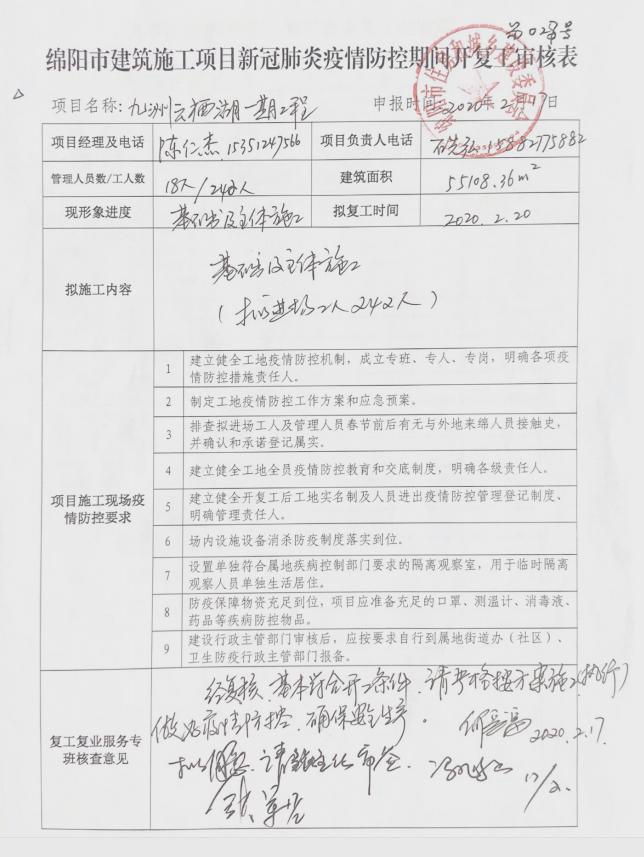 第028号
绵阳市建筑施工项目新冠肺炎疫情防控期间开复工审核表
项目名称：九洲云栖湖一期工程 申报时间 2020年2月17日
项目经理及电话 陈仁杰 15351247566 项目负责人电话 15882775882
管理人员数/工人数 18人/242人 建筑面积 55108.36m²
现形象进度 基础及主体施工 拟复工时间 2020.2.20
拟施工内容 基础及主体施工
（拟进场工人242人）
项目施工现场疫情防控要求
1 建立健全工地疫情防控机制，成立专班、专人、专岗，明确各项疫
情防控措施责任人。
2 制定工地疫情防控工作方案和应急预案。
3 排查拟进场工人及管理人员春节前后有无与外地来绵人员接触史，
并确认和承诺登记属实。
4 建立健全工地全员疫情防控教育和交底制度，明确各级责任人。
5 建立健全开复工后工地实名制及人员进出疫情防控管理登记制度、
明确管理责任人。
6 场内设施设备消杀防疫制度落实到位。
7 设置单独符合属地疾病控制部门要求的隔离观察室，用于临时隔离
观察人员单独生活居住。
8 防疫保障物资充足到位，项目应准备充足的口罩、测温计、消毒液、
药品等疾病防控物品。
9 建设行政主管部门审核后，应按要求自行到属地街道办（社区）、
卫生防疫行政主管部门报备。
复工复业服务专班核查意见
经复核，基本符合开工条件，请严格按方案施工（执行）
做好疫情防控，确保安全生产。 2020.2.17
拟同意，请 审签 17/2